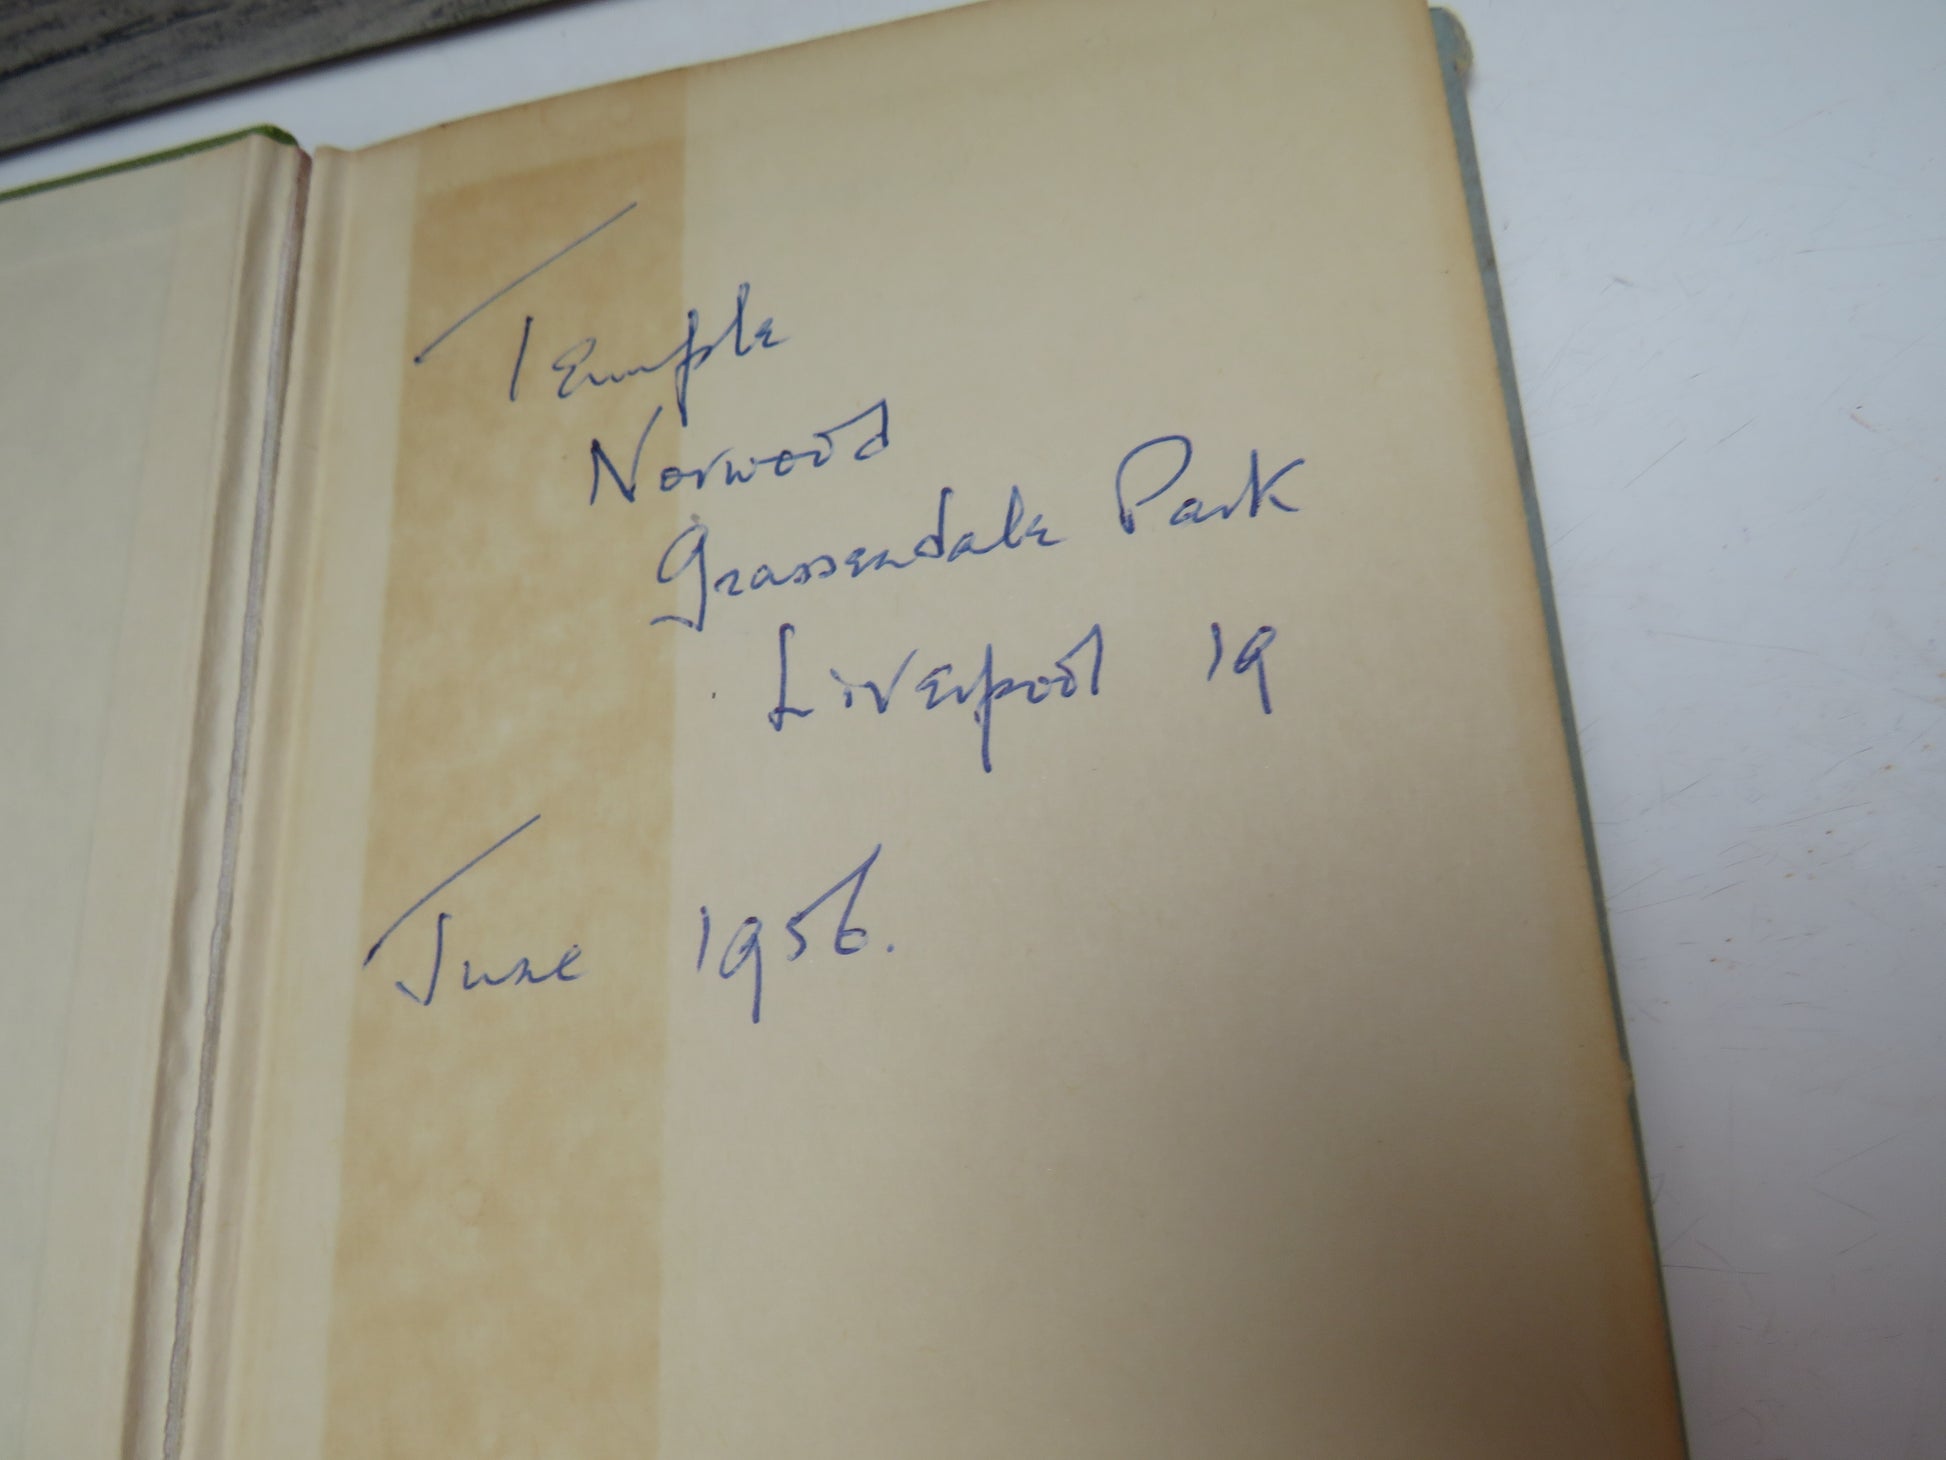 Temple
Norwood
Grassendale Park
Liverpool 19
June 1956.